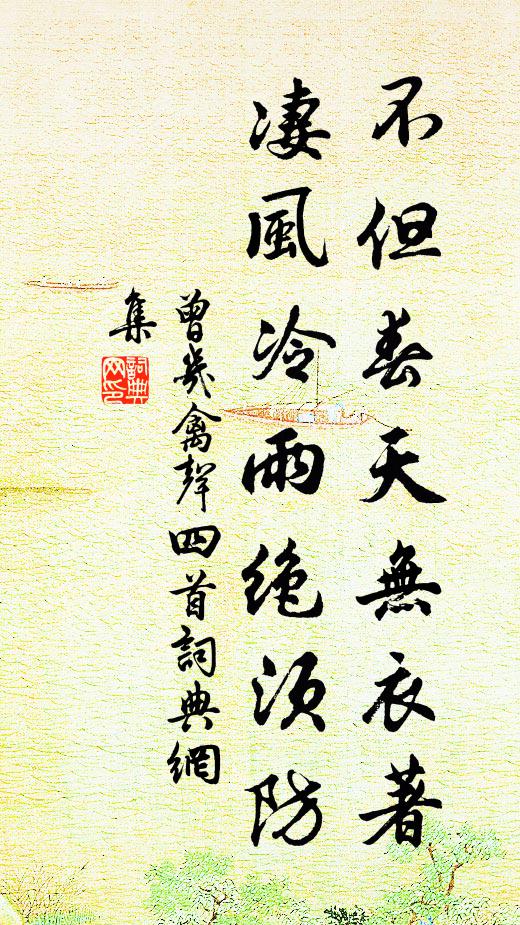 不但春天無衣著
淒風冷雨絶須防
曾幾禽聲四首詞典網
集
詞典
网印